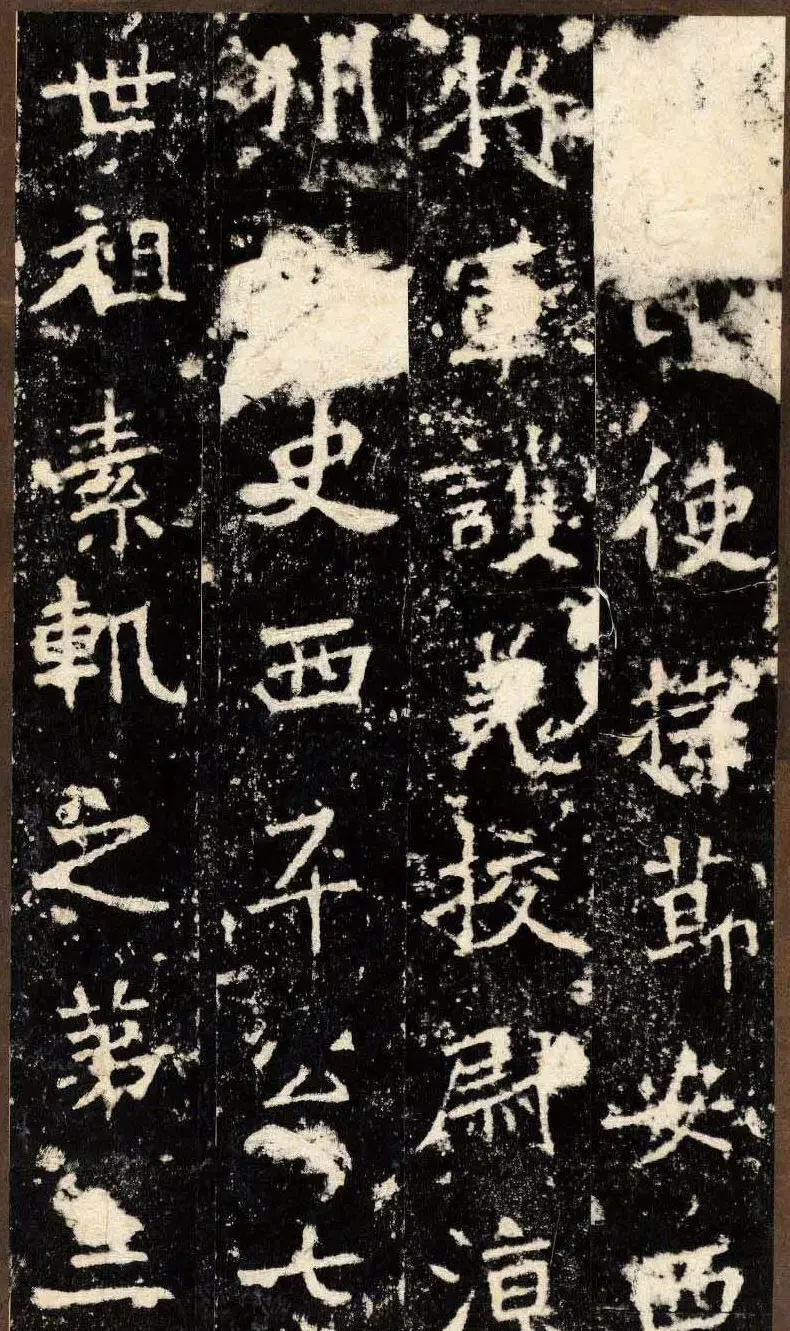 使持節安西
將軍護羌校尉涼
州史西平公七
世祖素軌之第三